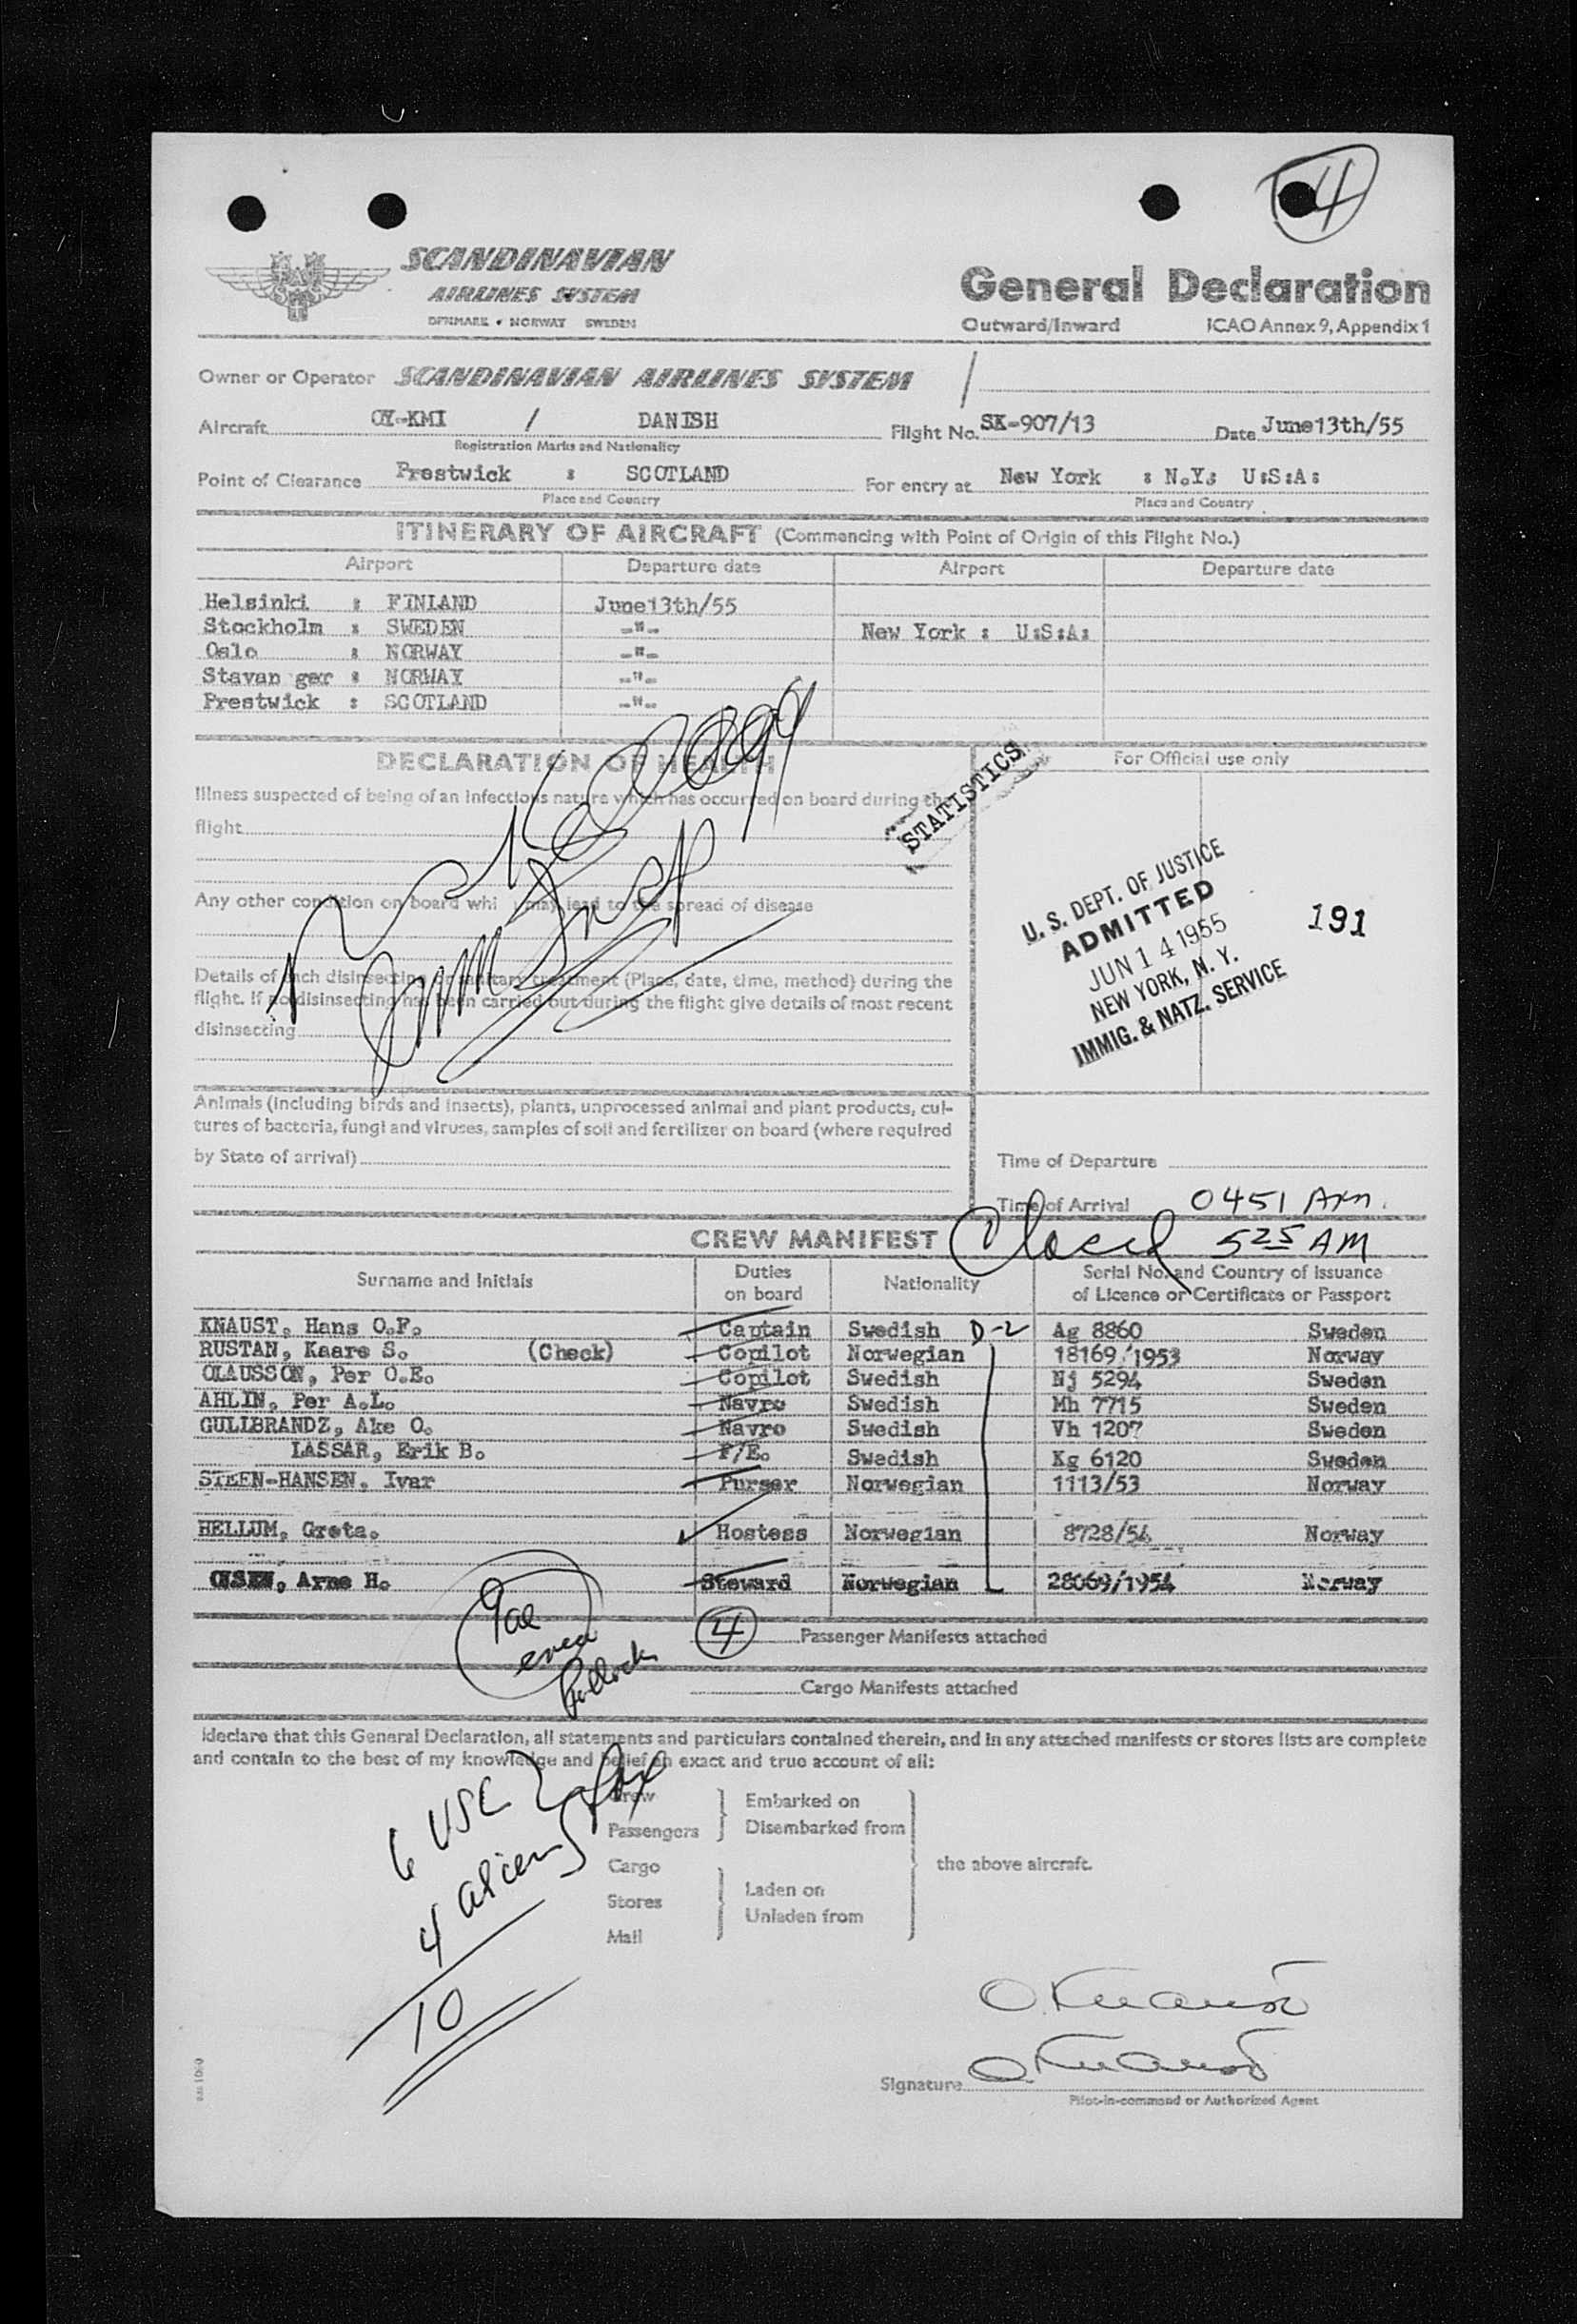 4
SCANDINAVIAN
AIRLINES SYSTEM
DENMARK • NORWAY SWEDEN
General Declaration
Outward/Inward ICAO Annex 9, Appendix 1
Owner or Operator SCANDINAVIAN AIRLINES SYSTEM /
Aircraft OY-KMI / DANISH Flight No. SK-907/13 Date June13th/55
Registration Marks and Nationality
Point of Clearance Prestwick : SCOTLAND For entry at New York : N.Y: U:S:A:
Place and Country Place and Country
ITINERARY OF AIRCRAFT (Commencing with Point of Origin of this Flight No.)
Airport Departure date Airport Departure date
Helsinki : FINLAND June13th/55
Stockholm : SWEDEN -"- New York : U:S:A:
Oslo : NORWAY -"-
Stavan ger : NORWAY -"-
Prestwick : SCOTLAND -"-
DECLARATION OF HEALTH For Official use only
Illness suspected of being of an infectious nature which has occurred on board during the
flight
STATISTICS
Any other condition on board whi may lead to the spread of disease
U. S. DEPT. OF JUSTICE
ADMITTED
JUN 14 1955
NEW YORK, N. Y.
IMMIG. & NATZ. SERVICE
191
Details of each disinsecting or sanitary treatment (Place, date, time, method) during the
flight. If no disinsecting has been carried out during the flight give details of most recent
disinsecting
Animals (including birds and insects), plants, unprocessed animal and plant products, cul-
tures of bacteria, fungi and viruses, samples of soil and fertilizer on board (where required
by State of arrival)
Time of Departure
Time of Arrival 0451 AM.
CREW MANIFEST Closed 525 AM
Surname and Initials Duties on board Nationality Serial No. and Country of Issuance of Licence or Certificate or Passport
KNAUST, Hans O.F. Captain Swedish D-2 Ag 8860 Sweden
RUSTAN, Kaare S. (Check) Copilot Norwegian 18169/1953 Norway
OLAUSSON, Per O.E. Copilot Swedish Nj 5294 Sweden
AHLIN, Per A.L. Navro Swedish Mh 7715 Sweden
GULLBRANDZ, Ake O. Navro Swedish Vh 1207 Sweden
LASSAR, Erik B. F/E. Swedish Kg 6120 Sweden
STEEN-HANSEN, Ivar Purser Norwegian 1113/53 Norway
HELLUM, Greta. Hostess Norwegian 8728/54 Norway
OLSEN, Arne H. Steward Norwegian 28069/1954 Norway
4 Passenger Manifests attached
Cargo Manifests attached
I declare that this General Declaration, all statements and particulars contained therein, and in any attached manifests or stores lists are complete
and contain to the best of my knowledge and belief an exact and true account of all:
6 USC
4 aliens
10
Crew
Passengers
Embarked on
Disembarked from
Cargo
Stores
Mail
Laden on
Unladen from
the above aircraft.
O. Knaust
O. Knaust
Signature
Pilot-in-command or Authorized Agent